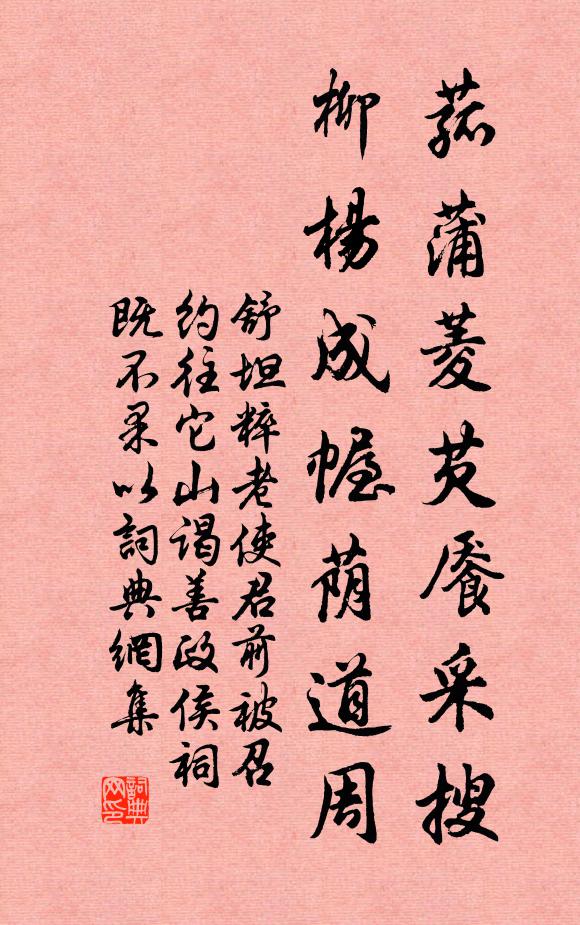 菰蒲菱芡餍采搜
柳楊成幄荫道周
舒坦粹老使君前被召
約往它山谒善政侯祠
既不果以詞典網集
詞典网印